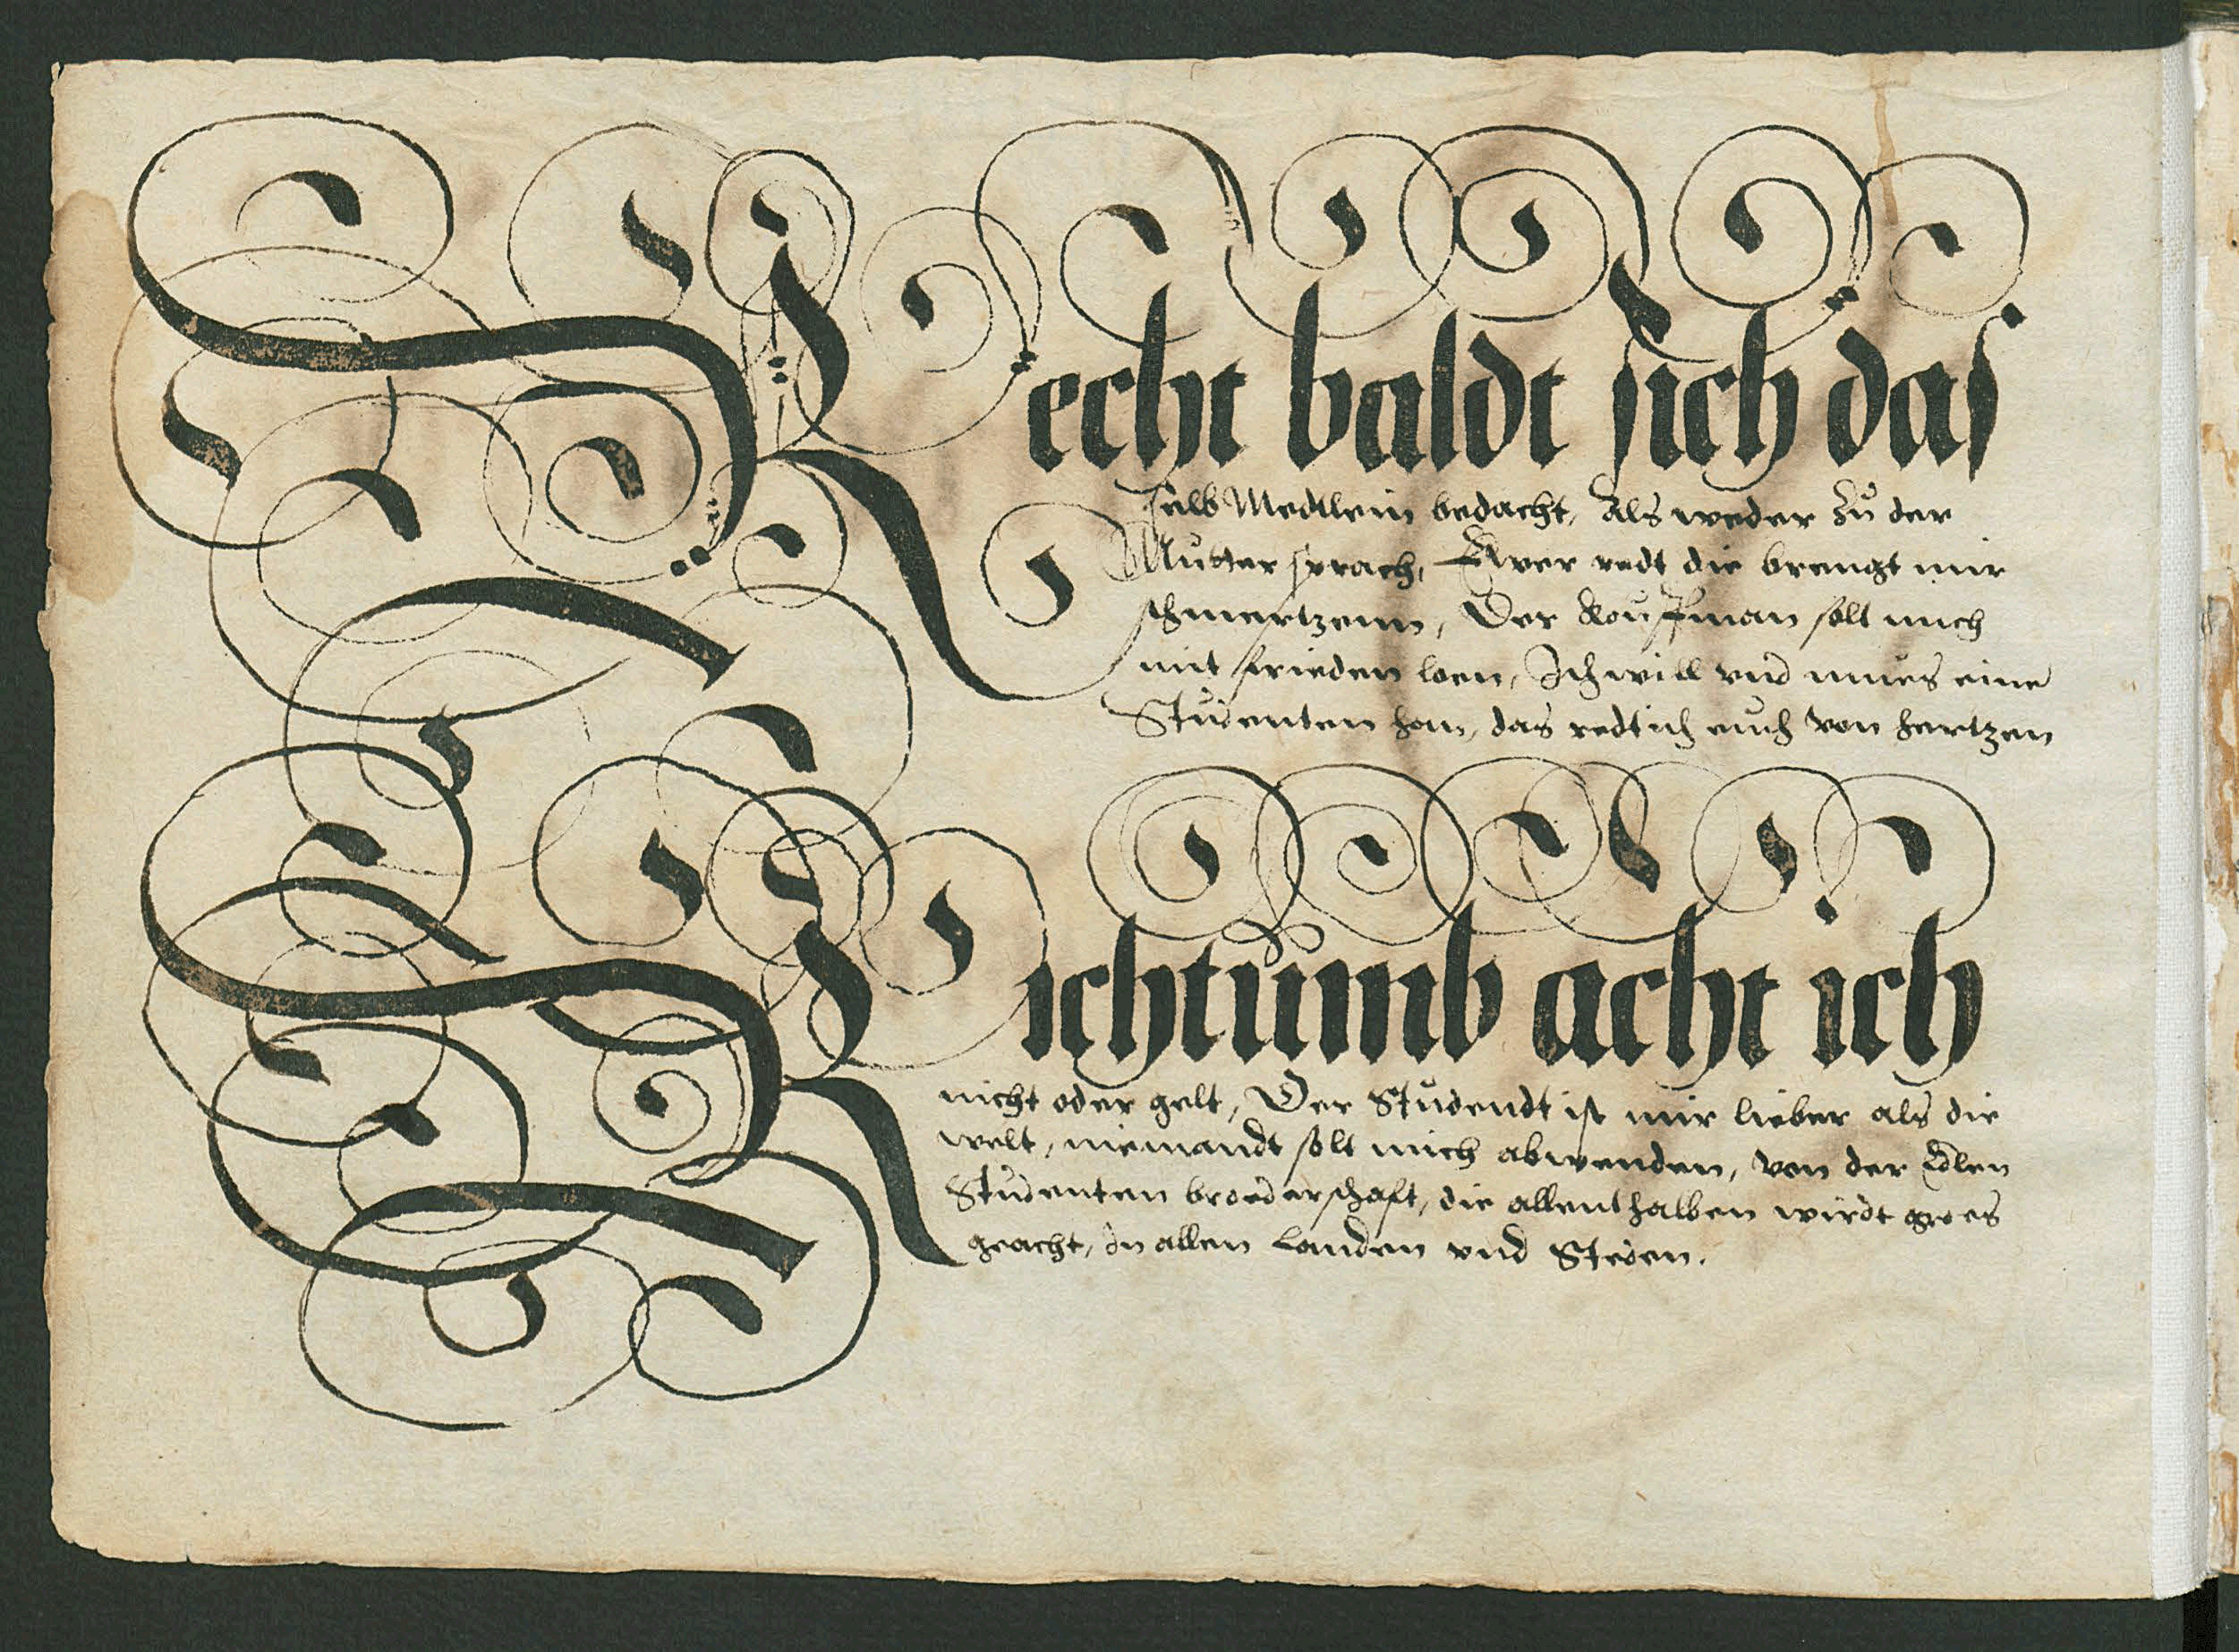 Recht baldt sich das
selb Medtlein bedacht, Als weder zů der
Můtter sprach, Ewer redt die brengt mir
schmertzenn, Der Kouffman solt mich
mit frieden loen, Ich will vnd můes eine
Stůdenten hon, das redt ich euch von hertzen
Richtůmb acht ich
nicht oder gelt, Der Stůdendt ist mir lieber als die
welt, niemandt solt mich abwenden, von der Edlen
Stůdenten broederschaft, die allenthalben wirdt groes
geacht, In allen Landen vnd Steden.